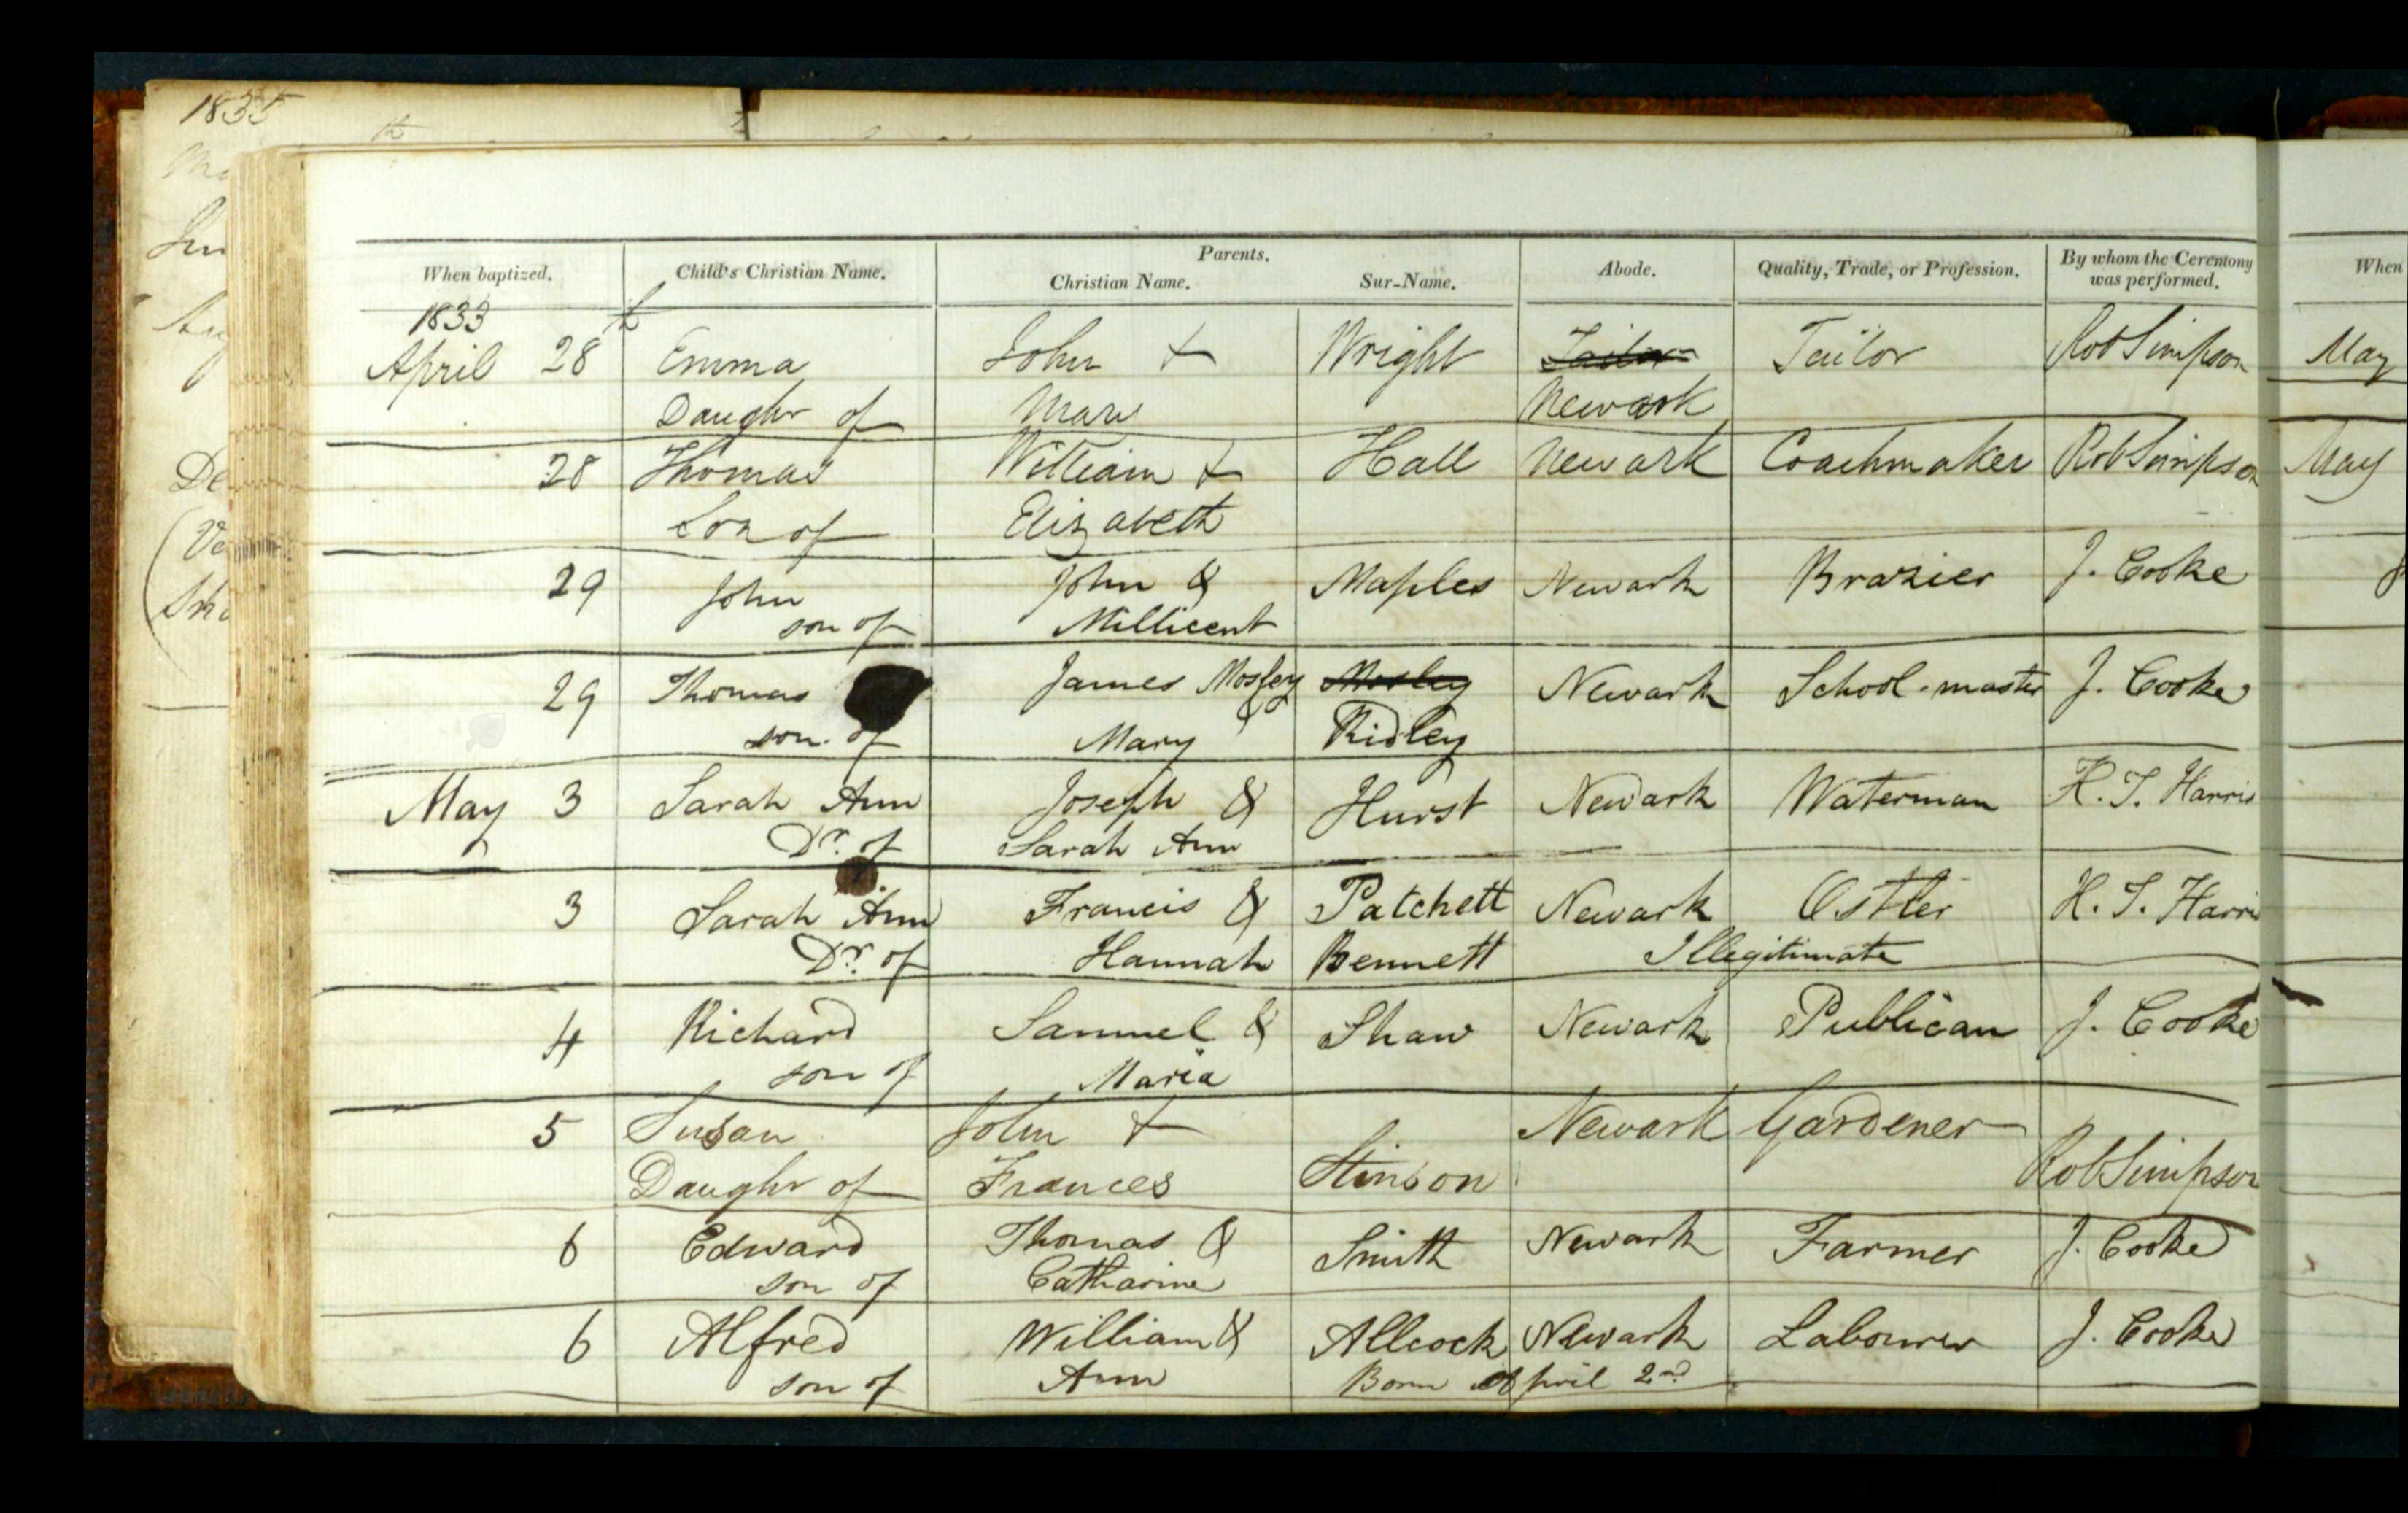 1835
When baptized. Child's Christian Name. Parents. Christian Name. Sur-Name. Abode. Quality, Trade, or Profession. By whom the Ceremony was performed. When
1833
April 28 Emma John & Wright Tailor Tailor Rob Simpson May
Daughr of Mary Newark
28 Thomas William & Hall Newark Coachmaker Rob Simpson May
Son of Elizabeth
29 John John & Maples Newark Brazier J. Cooke
son of Millicent
29 Thomas James Mosley & Mosley Newark School-master J. Cooke
son of Mary Ridley
May 3 Sarah Ann Joseph & Hurst Newark Waterman H. S. Harris
Dr. of Sarah Ann
3 Sarah Ann Francis & Patchett Newark Ostler H. S. Harris
Dr. of Hannah Bennett Illegitimate
4 Richard Samuel & Shaw Newark Publican J. Cooke
son of Maria
5 Susan John & Newark Gardener
Daughr of Frances Stinson Rob Simpson
6 Edward Thomas & Smith Newark Farmer J. Cooke
son of Catharine
6 Alfred William & Allcock Newark Labourer J. Cooke
son of Ann Born April 2nd